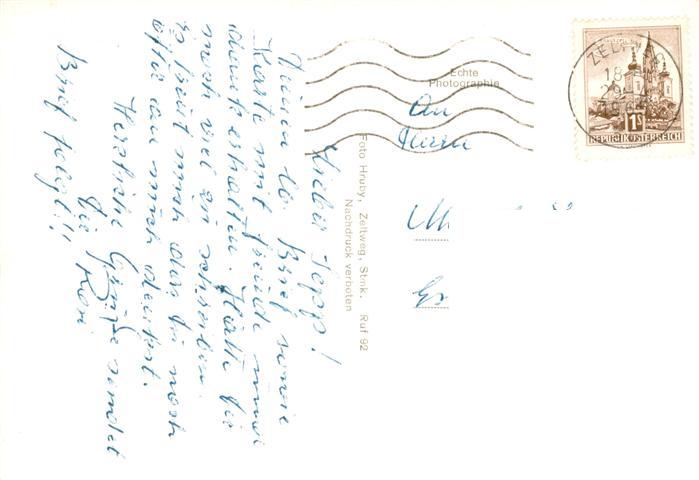 Lieber Seppp!
Deinen lb. Brief sowie
Karte mit Freude immer
dankerhalten. Hätte Dir
noch viel zu schreiben.
Es freut mich das Du noch
öfter an mich denkst.
Herzliche Grüße sendet
Dir Resi
Brief folgt!!
Echte
Photographie
An
Herrn
M
Gr
Foto Hruby, Zeltweg, Stmk. Ruf 92
Nachdruck verboten
ZEL
18
29
1S
REPUBLIK ÖSTERREICH